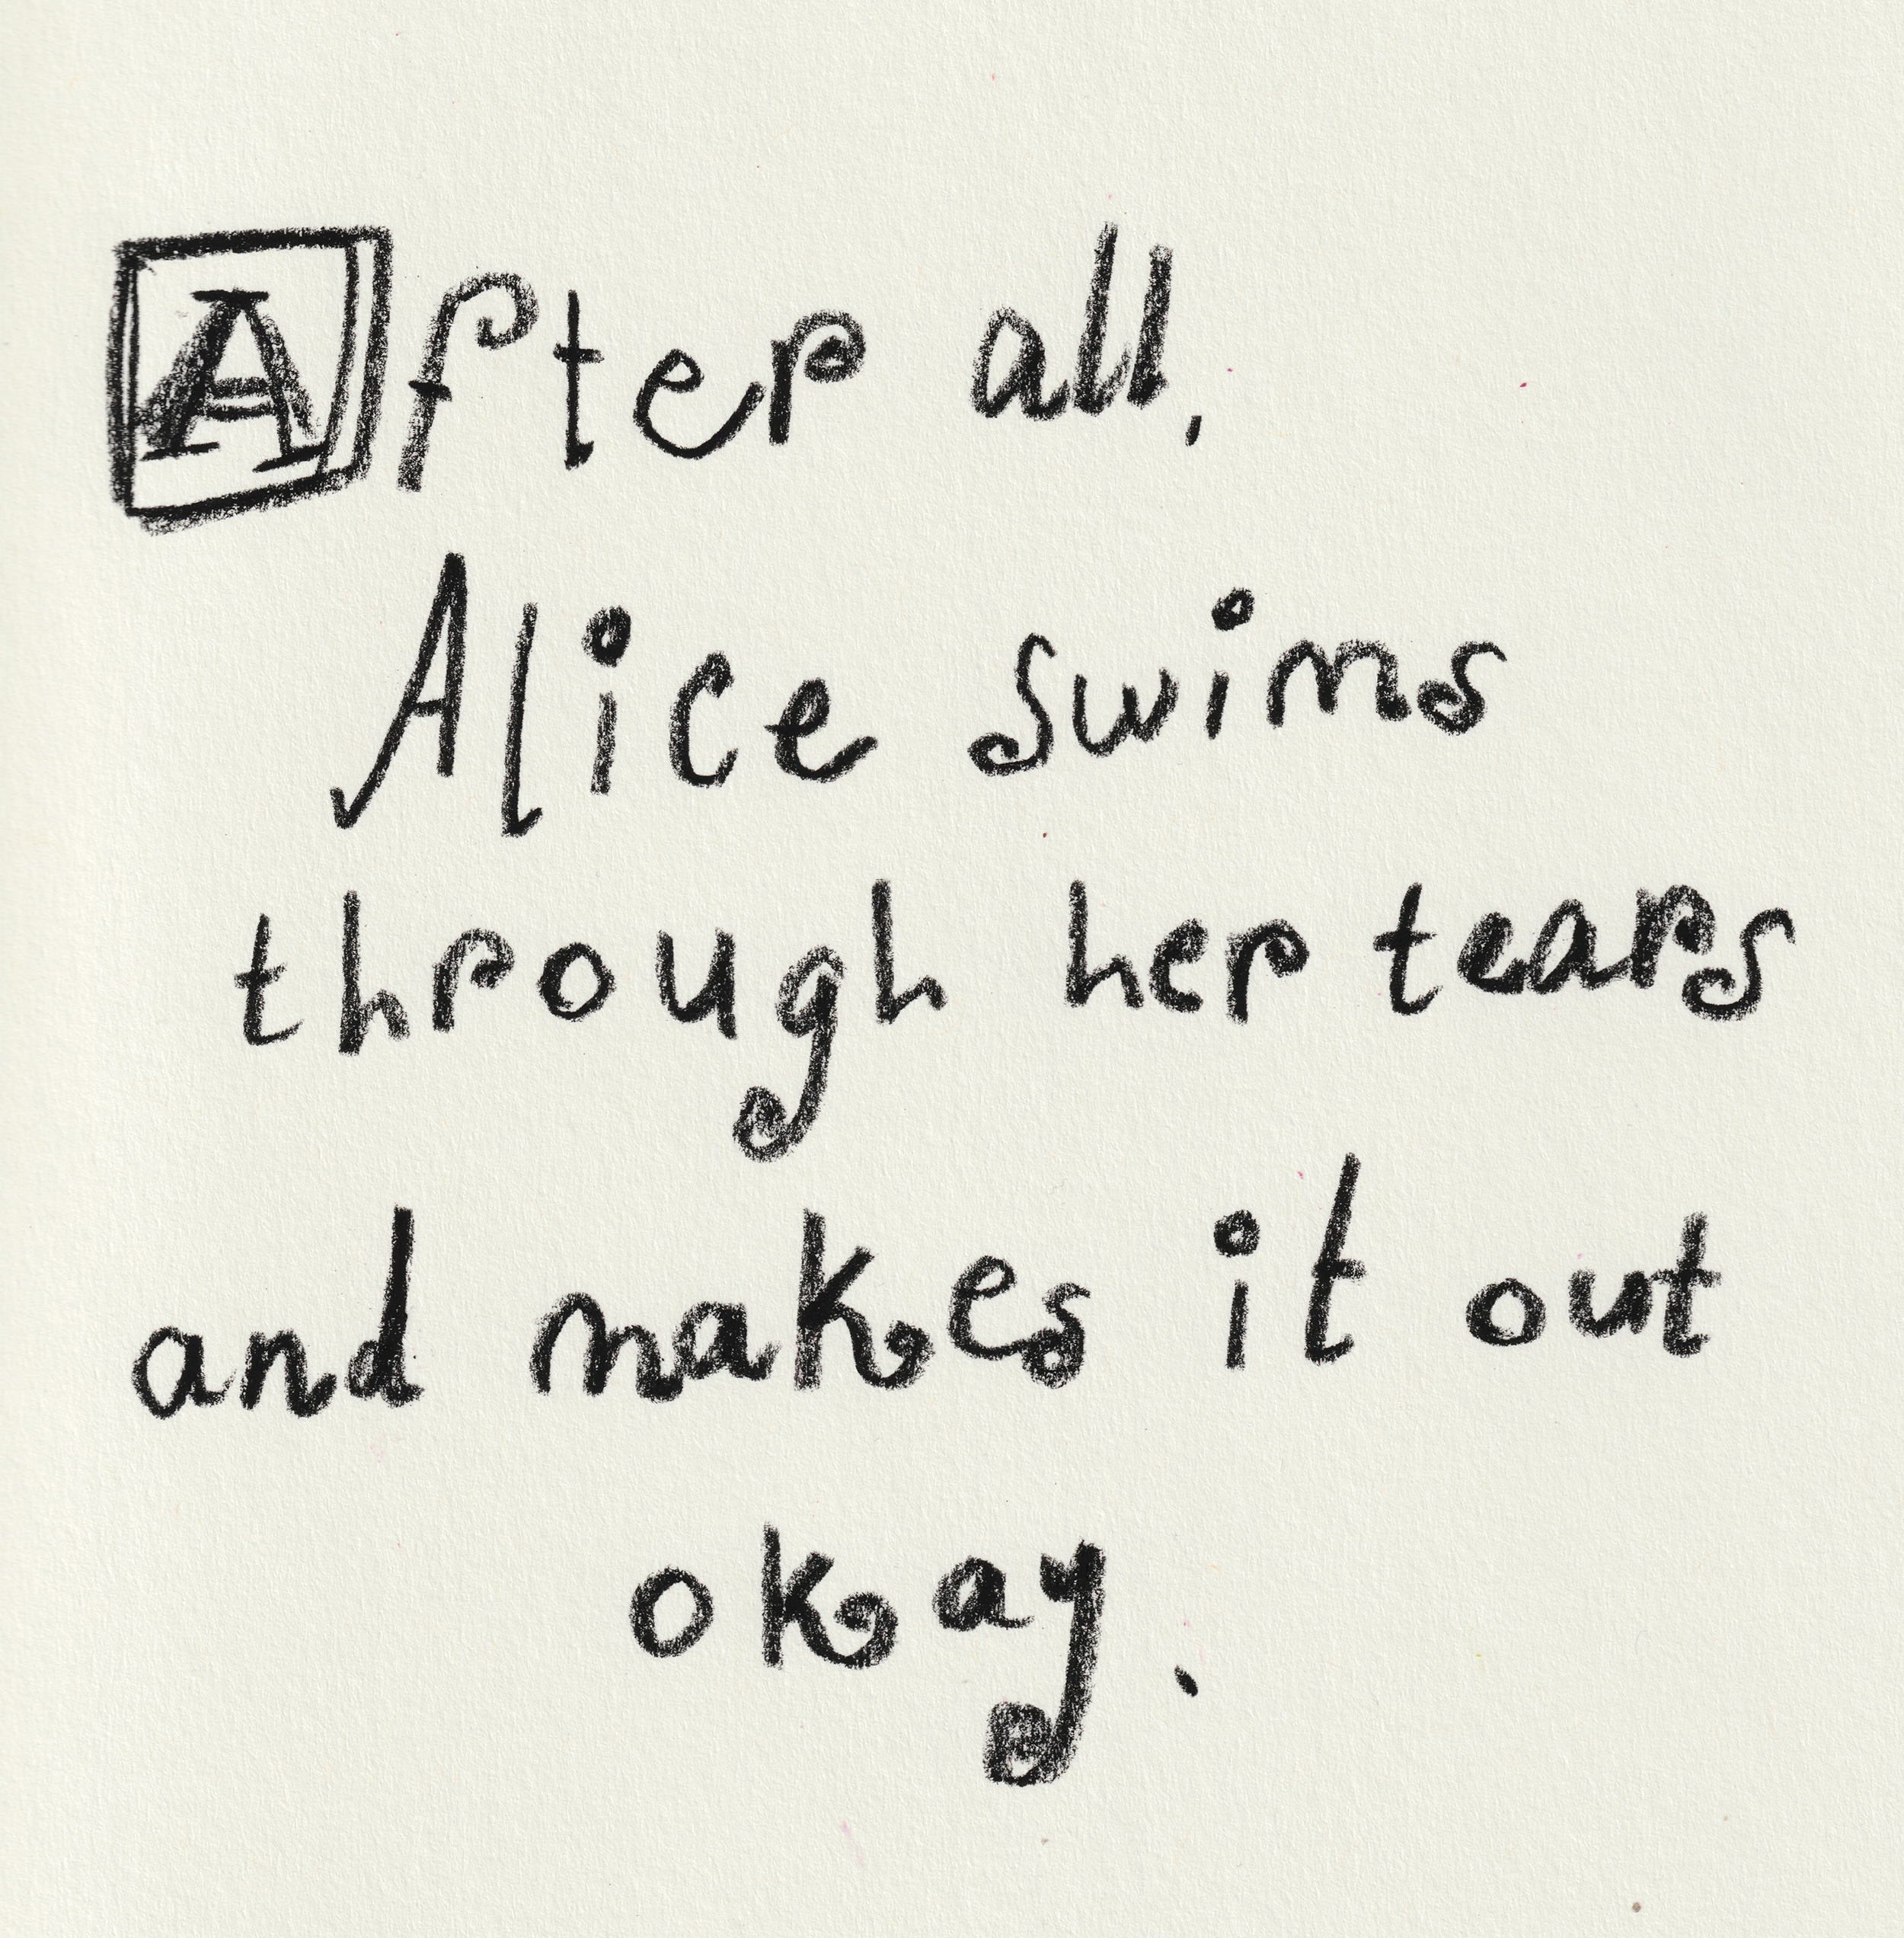 After all,
Alice swims
through her tears
and makes it out
okay.